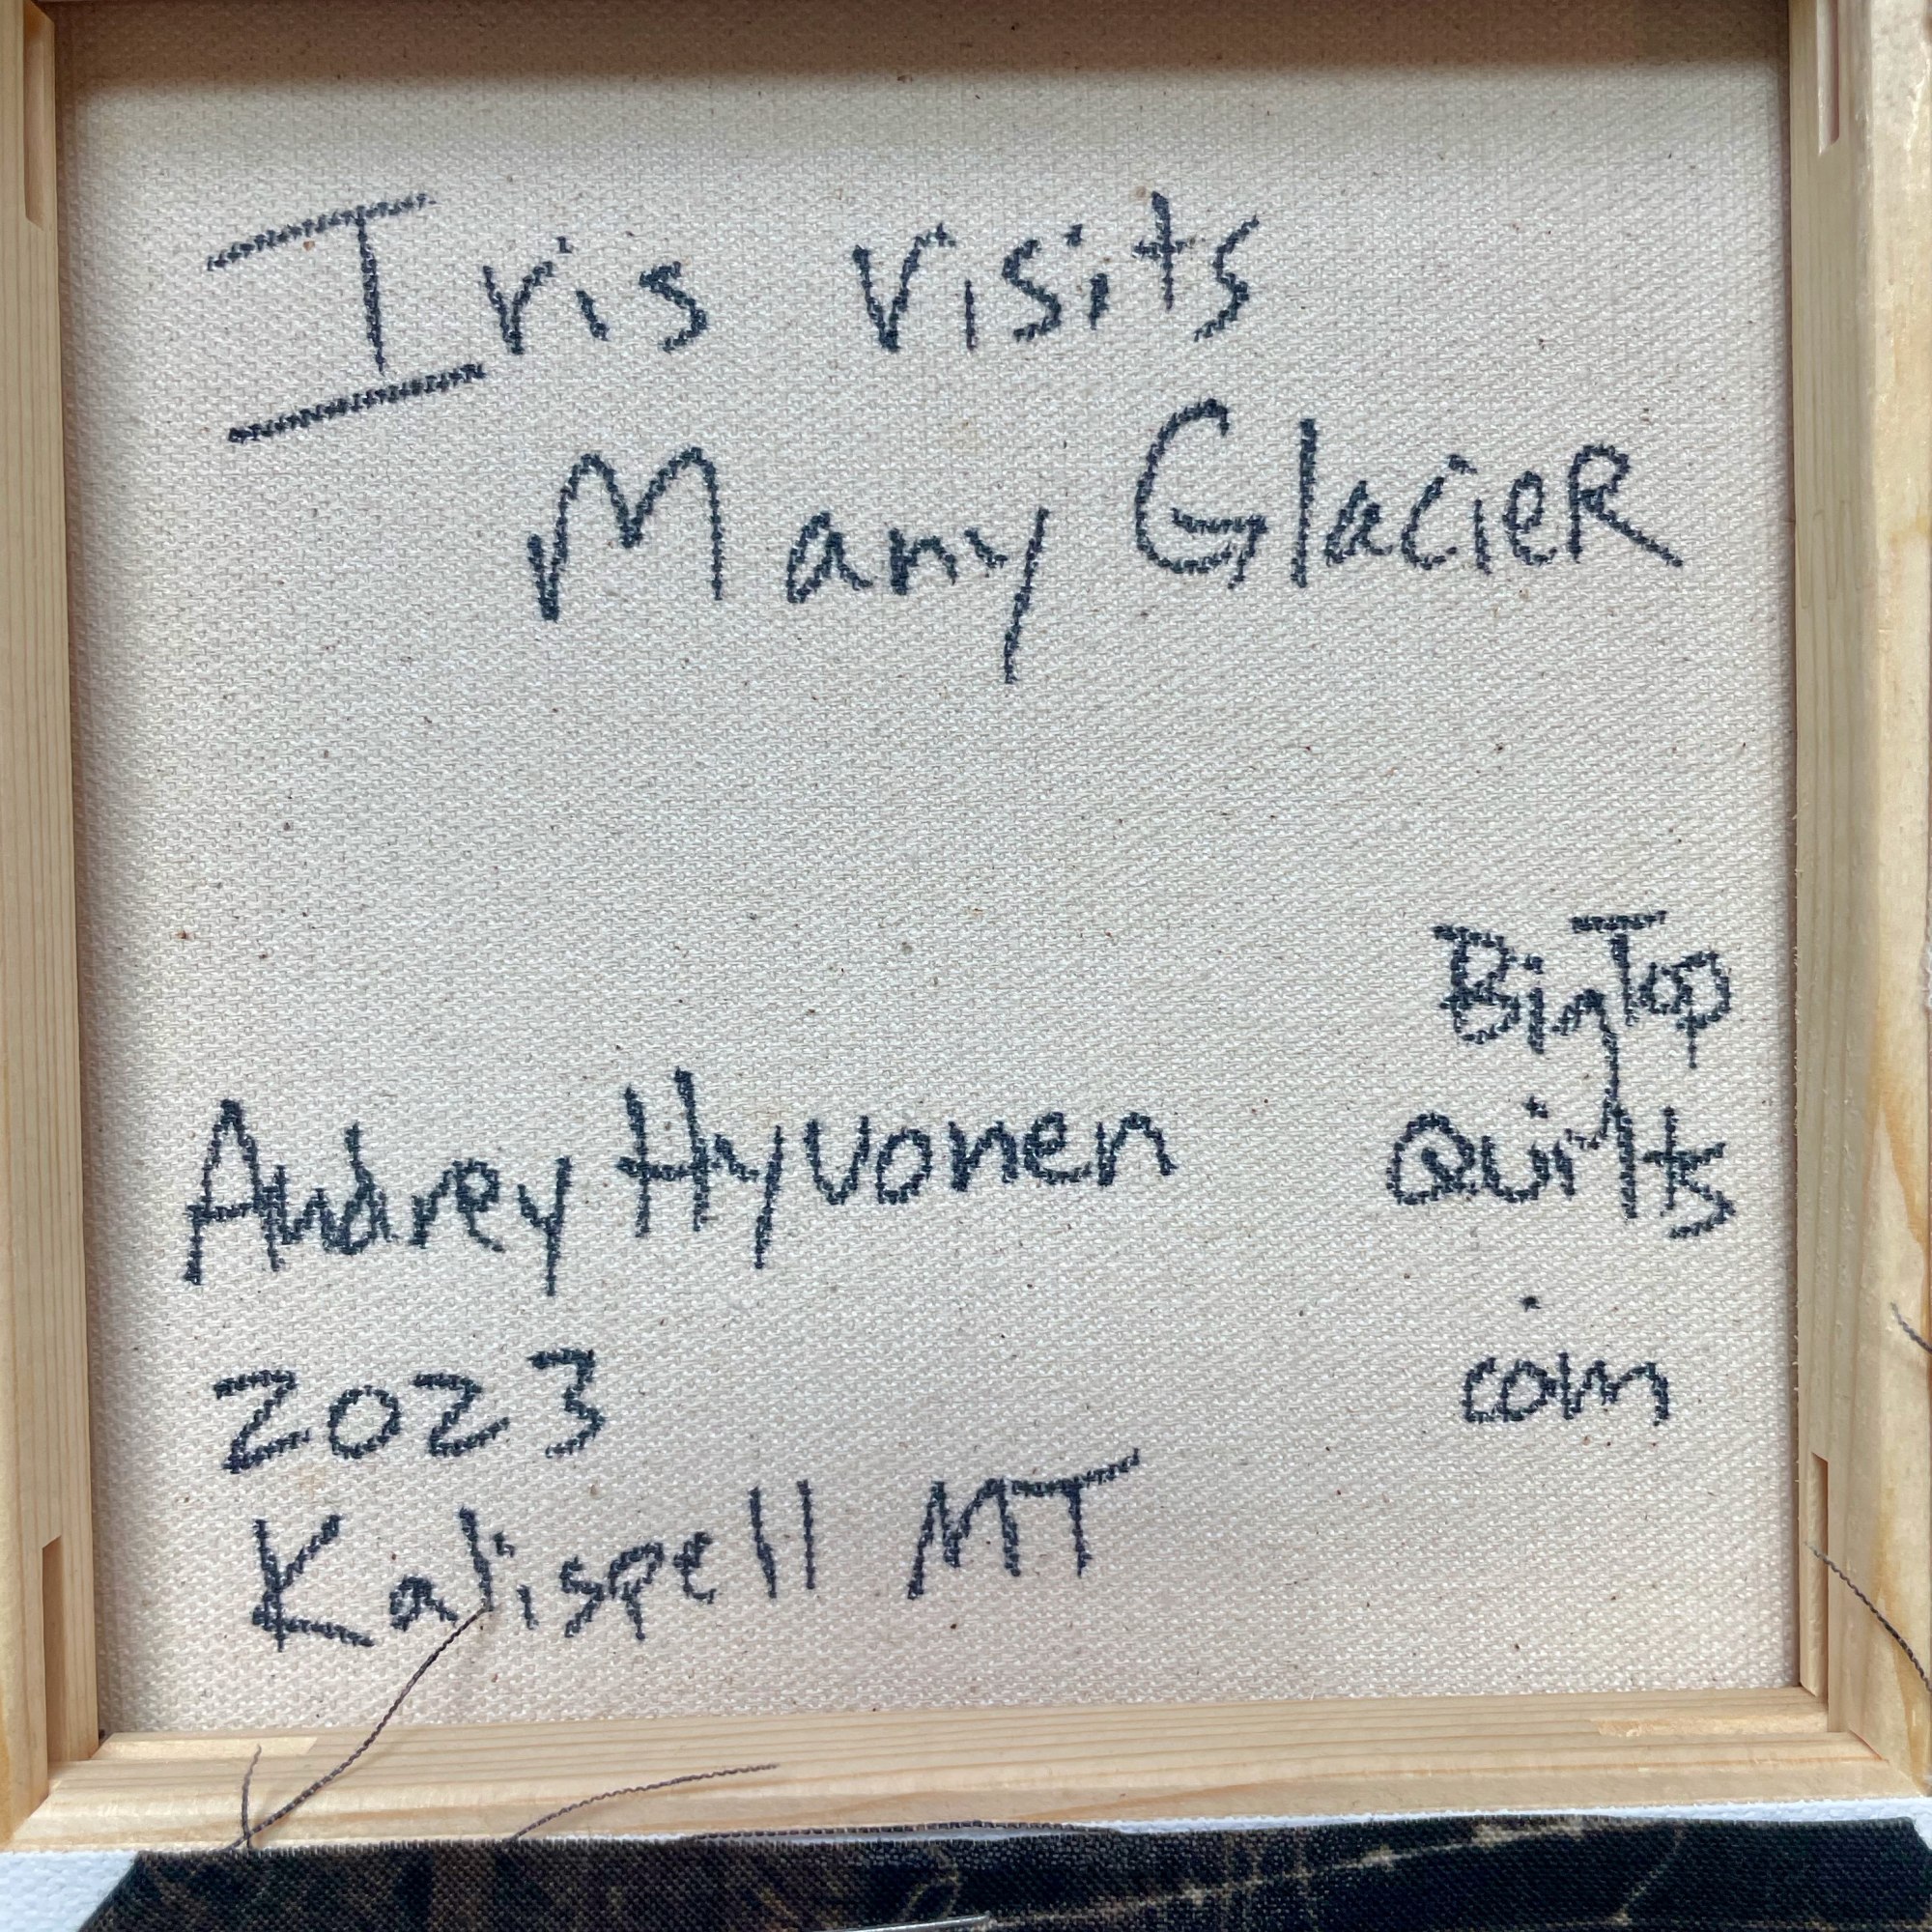 Iris visits
Many GlacieR
Audrey Hyvonen
2023
Kalispell MT
BigTop
Quilts
.
com